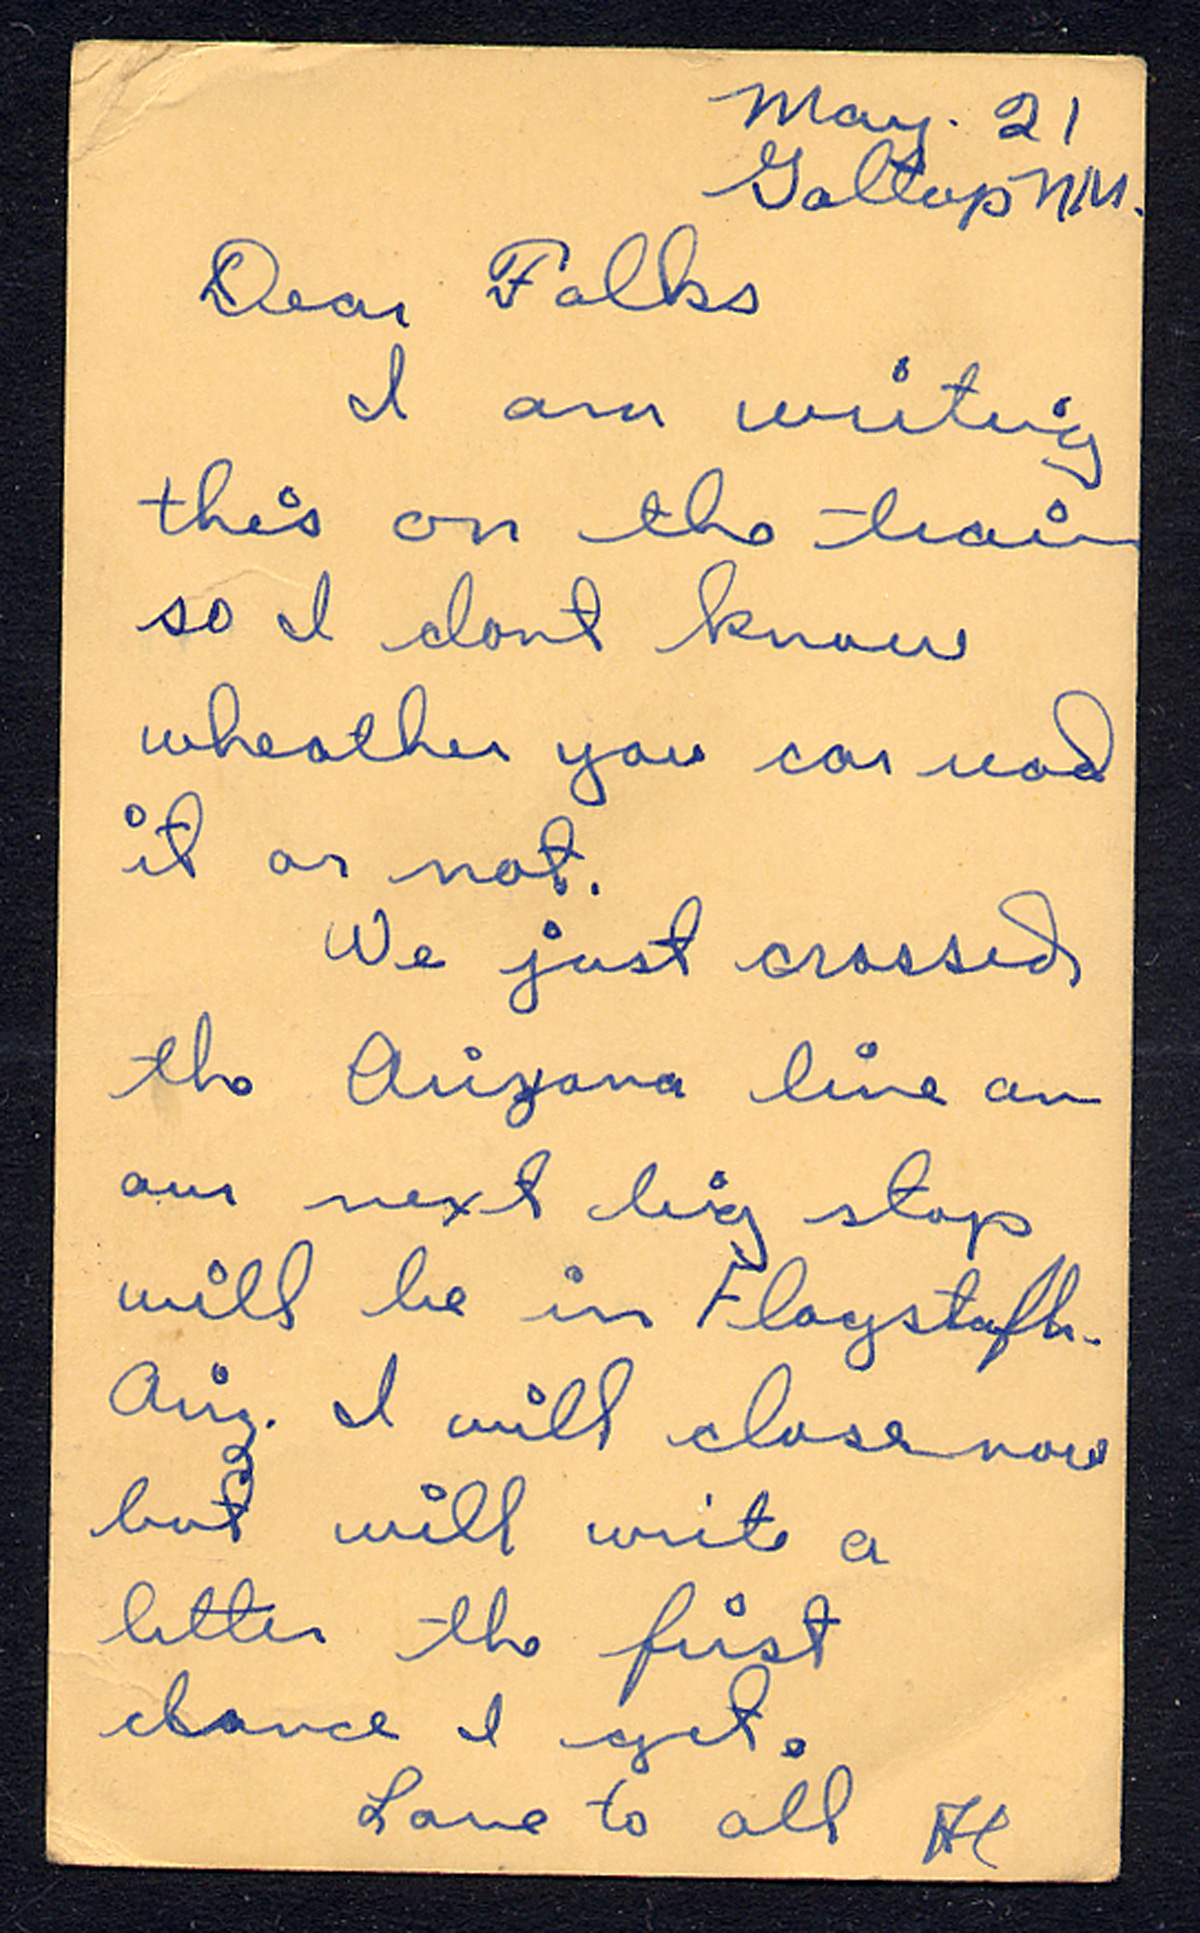 May. 21
Galtup NM.
Dear Folks
I am writing
this on the train
so I dont know
wheather you can read
it or not.
We just crossed
the Arizona line an
our next big stop
will be in Flagstaff.
Ariz. I will close now
but will write a
letter the first
chance I get.
Love to all Al